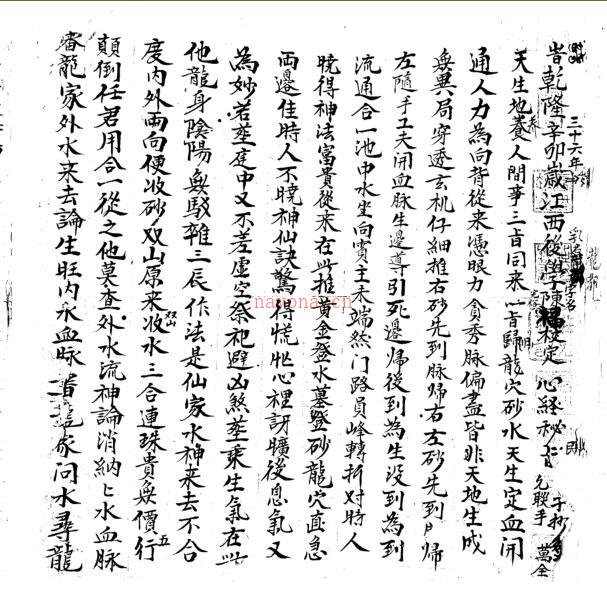 旹乾隆辛卯歲江西後學陳 校定 心経秘旨
三十六年
天生地養人間事三旨同来一旨歸龍穴砂水天生定血開
通人力為向背從来憑眼力貪秀脉偏盡皆非天地生成
無異局穿透玄机仔細推右砂先到脉歸右左砂先到歸
左隨手工夫開血脉生邊導引死邊歸後到為生没到為到
流通合一池中水坐向賓主未端然门路員峰轉折对時人
曉得神法富貴從来在此推黄金盛水墓盛砂龍穴直急
両邊佳時人不曉神仙訣驚得慌忙心裡訝曠後息氣又
為妙若塟度中又不差虚空祭祀避凶煞塟乗生氣在此
他龍身陰陽無駁雜三辰作法是仙家水神来去不合
度内外兩向便收砂双山原来收水三合連珠貴無價行
顛倒任君用合一從之他莫查外水流神論消納上水血脉
審龍家外水来去論生旺内水血脉 龍家问水尋龍